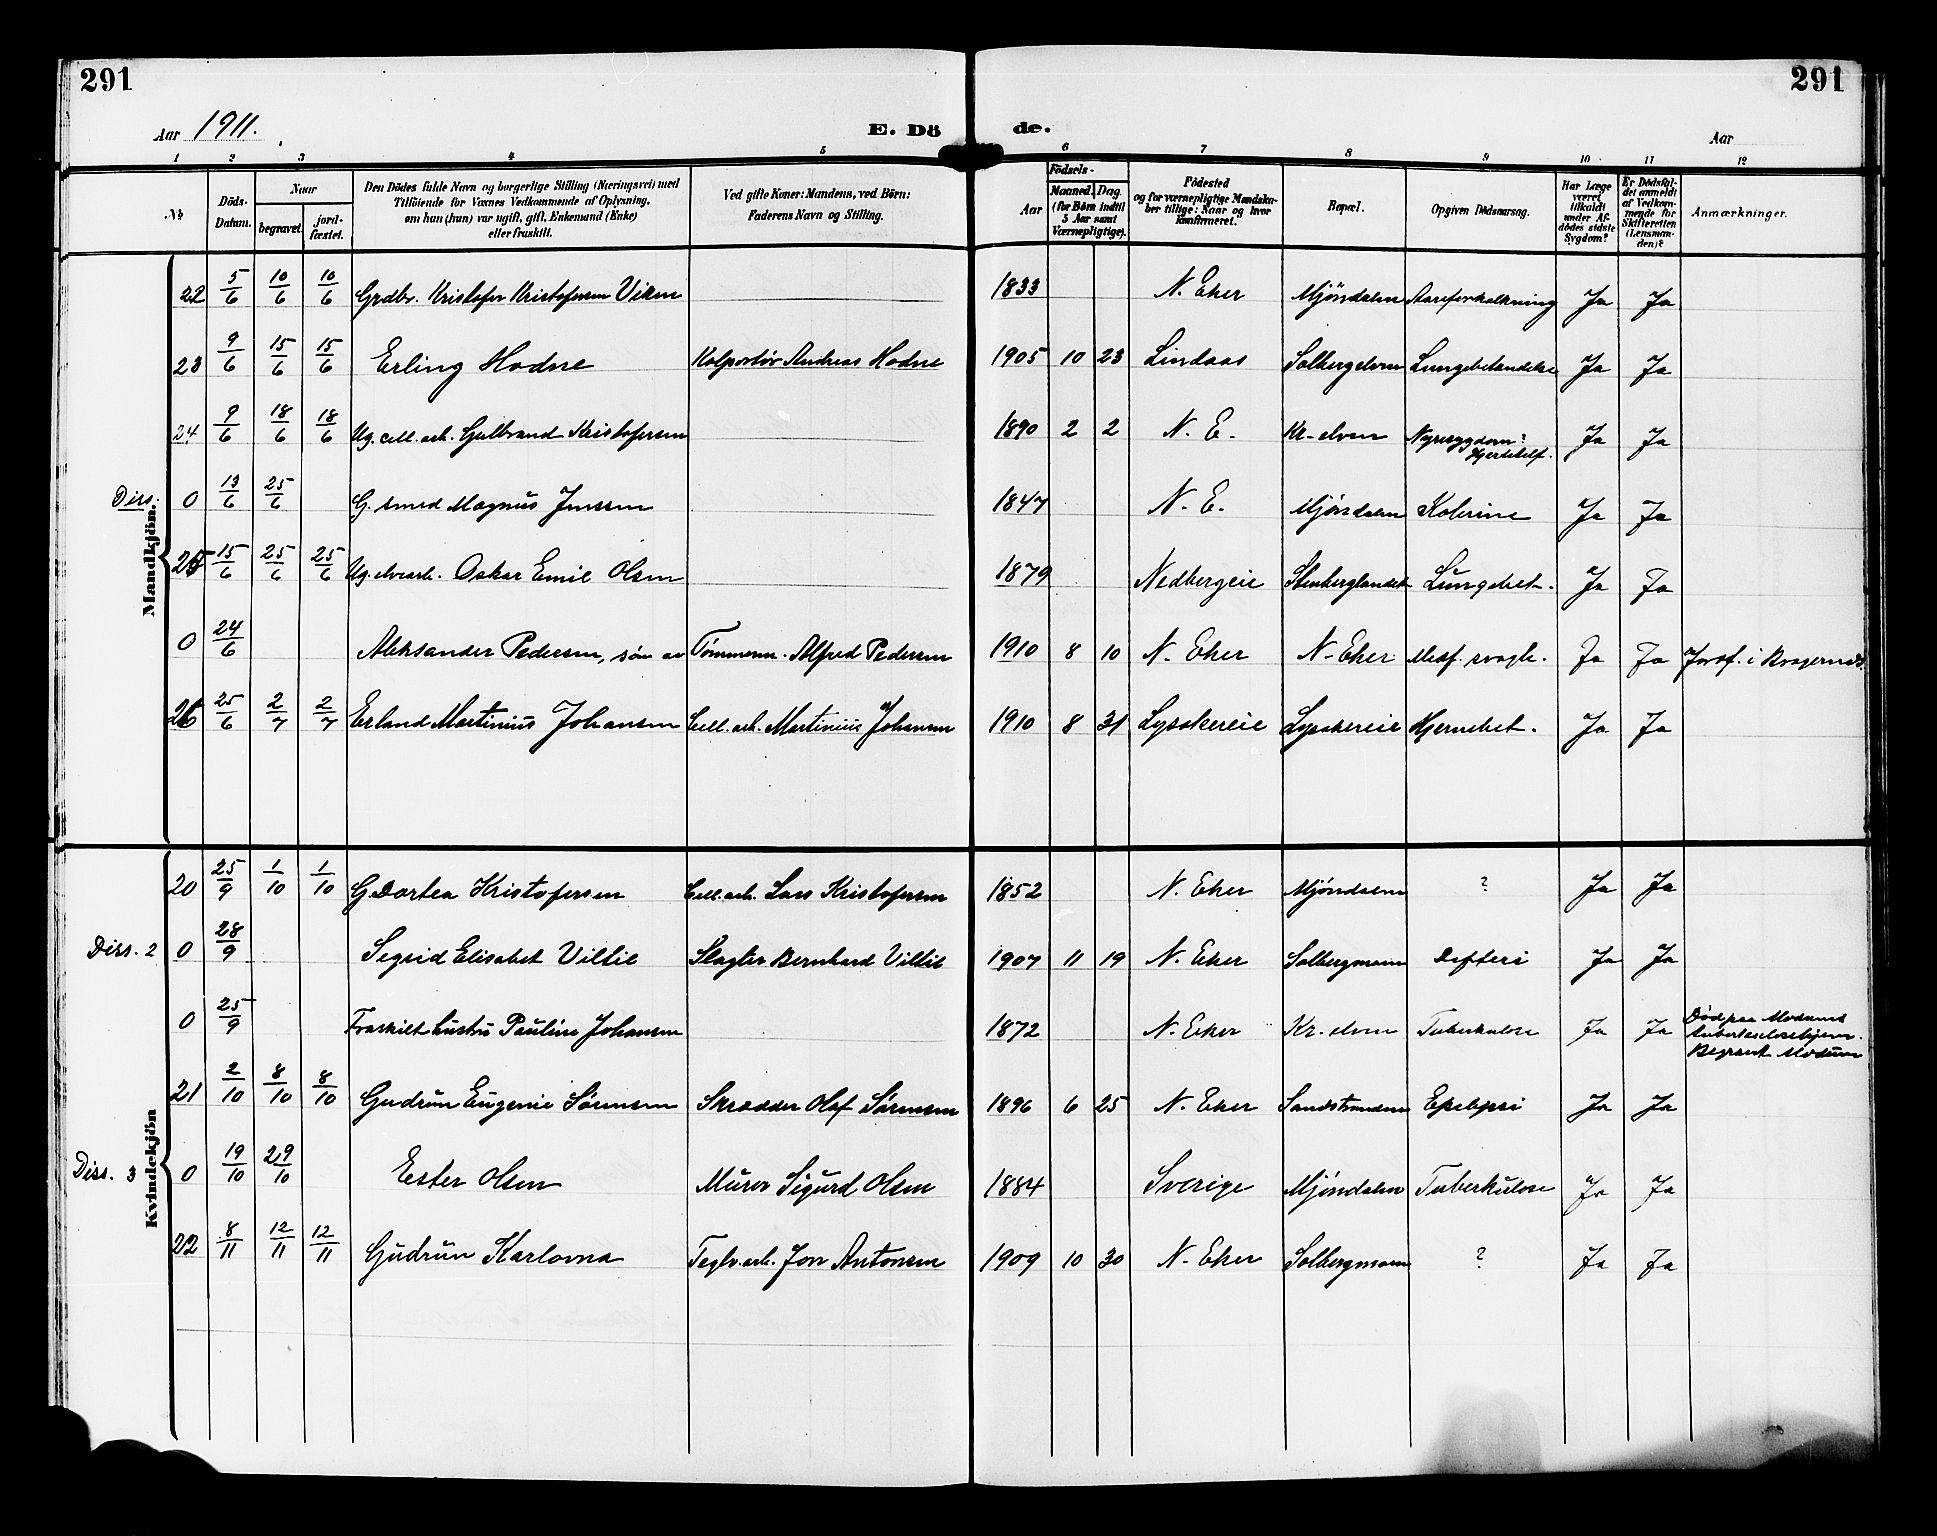 291
291
Aar 1911.
E. Dö de.
Aar
1 2 3 4 5 6 7 8 9 10 11 12
No
Döds-Datum.
Naar
begravet
jord-fæstet.
Den Dödes fulde Navn og borgerlige Stilling (Næringsvei) med
Tilföiende for Voxnes Vedkommende af Oplysning,
om han (hun) var ugift, gift, Enkemand (Enke)
eller fraskilt.
Ved gifte Koner: Mandens, ved Börn:
Faderens Navn og Stilling.
Födsels-
Aar
Maaned. Dag.
(for Børn indtil
5 Aar samt
Værnepligtige).
Födested
og for værnepligtige Mandska-
ber tillige: Naar og hvor
konfirmeret.
Bopæl.
Opgiven Dödsaarsag.
Har Læge
været
tilkaldt
under Af-
dødes sidste
Sygdom?
Er Dödsfal-
det anmeldt
af Vedkom-
mende for
Skifteretten
(Lensman-
den)?
Anmærkninger.
Mandkjön.
22 5/6 10/6 10/6 Grdbr. Kristofer Kristofersen Viken 1833 N. Eker Mjöndalen Aareforkalkning Ja Ja
23 9/6 15/6 15/6 Erling Hodne Kolportör Andreas Hodne 1905 10 23 Lindaas Solbergelven Lungebetændelse Ja Ja
24 9/6 18/6 18/6 Ug. cell. arb. Gulbrand Kristofersen 1890 2 2 N. E. Kr-elven Nyresygdom? Hjertefeil. Ja Ja
Diss. 0 13/6 25/6 G. smed Magnus Jenssen 1847 N. E. Mjöndalen Kolerine Ja Ja
25 15/6 25/6 25/6 Ug. elvearb. Oskar Emil Olsen 1879 Nedbergeie Stenberglandet Lungebet. Ja Ja
0 24/6 Aleksander Pedersen, sön av Tömmerm. Alfred Pedersen 1910 8 10 N. Eker N. Eker Medf. svagh. Ja Ja Jordf. i Bragernæs.
26 25/6 2/7 2/7 Erland Martinius Johansen Cell. arb. Martinius Johansen 1910 8 31 Lysakereie Lysakereie Hjernebet. Ja Ja
Kvindekjön
20 25/9 1/10 1/10 G. Dortea Kristofersen Cell. arb. Lars Kristofersen 1852 N. Eker Mjöndalen ? Ja Ja
Diss. 2 0 28/9 Sigrid Elisabet Viltil Slagter Bernhard Viltil 1907 11 19 N. Eker Solbergmoen Difteri Ja Ja
0 25/9 Fraskilt hustru Pauline Johansen 1872 N. Eker Kr. elven Tuberkulose Ja Ja Död paa Modums Tuberkulosehjem. Begravet Modum
21 2/10 8/10 8/10 Gudrun Eugenie Sörensen Skrædder Olaf Sörensen 1896 6 25 N. Eker Sandstranden Epelepsi Ja Ja
Diss. 3 0 19/10 29/10 Ester Olsen Murer Sigurd Olsen 1884 Sverige Mjöndalen Tuberkulose Ja Ja
22 8/11 12/11 12/11 Gudrun Karlovna Teglv. arb. Jon Antonsen 1909 10 30 N. Eker Solbergmoen ? Ja Ja